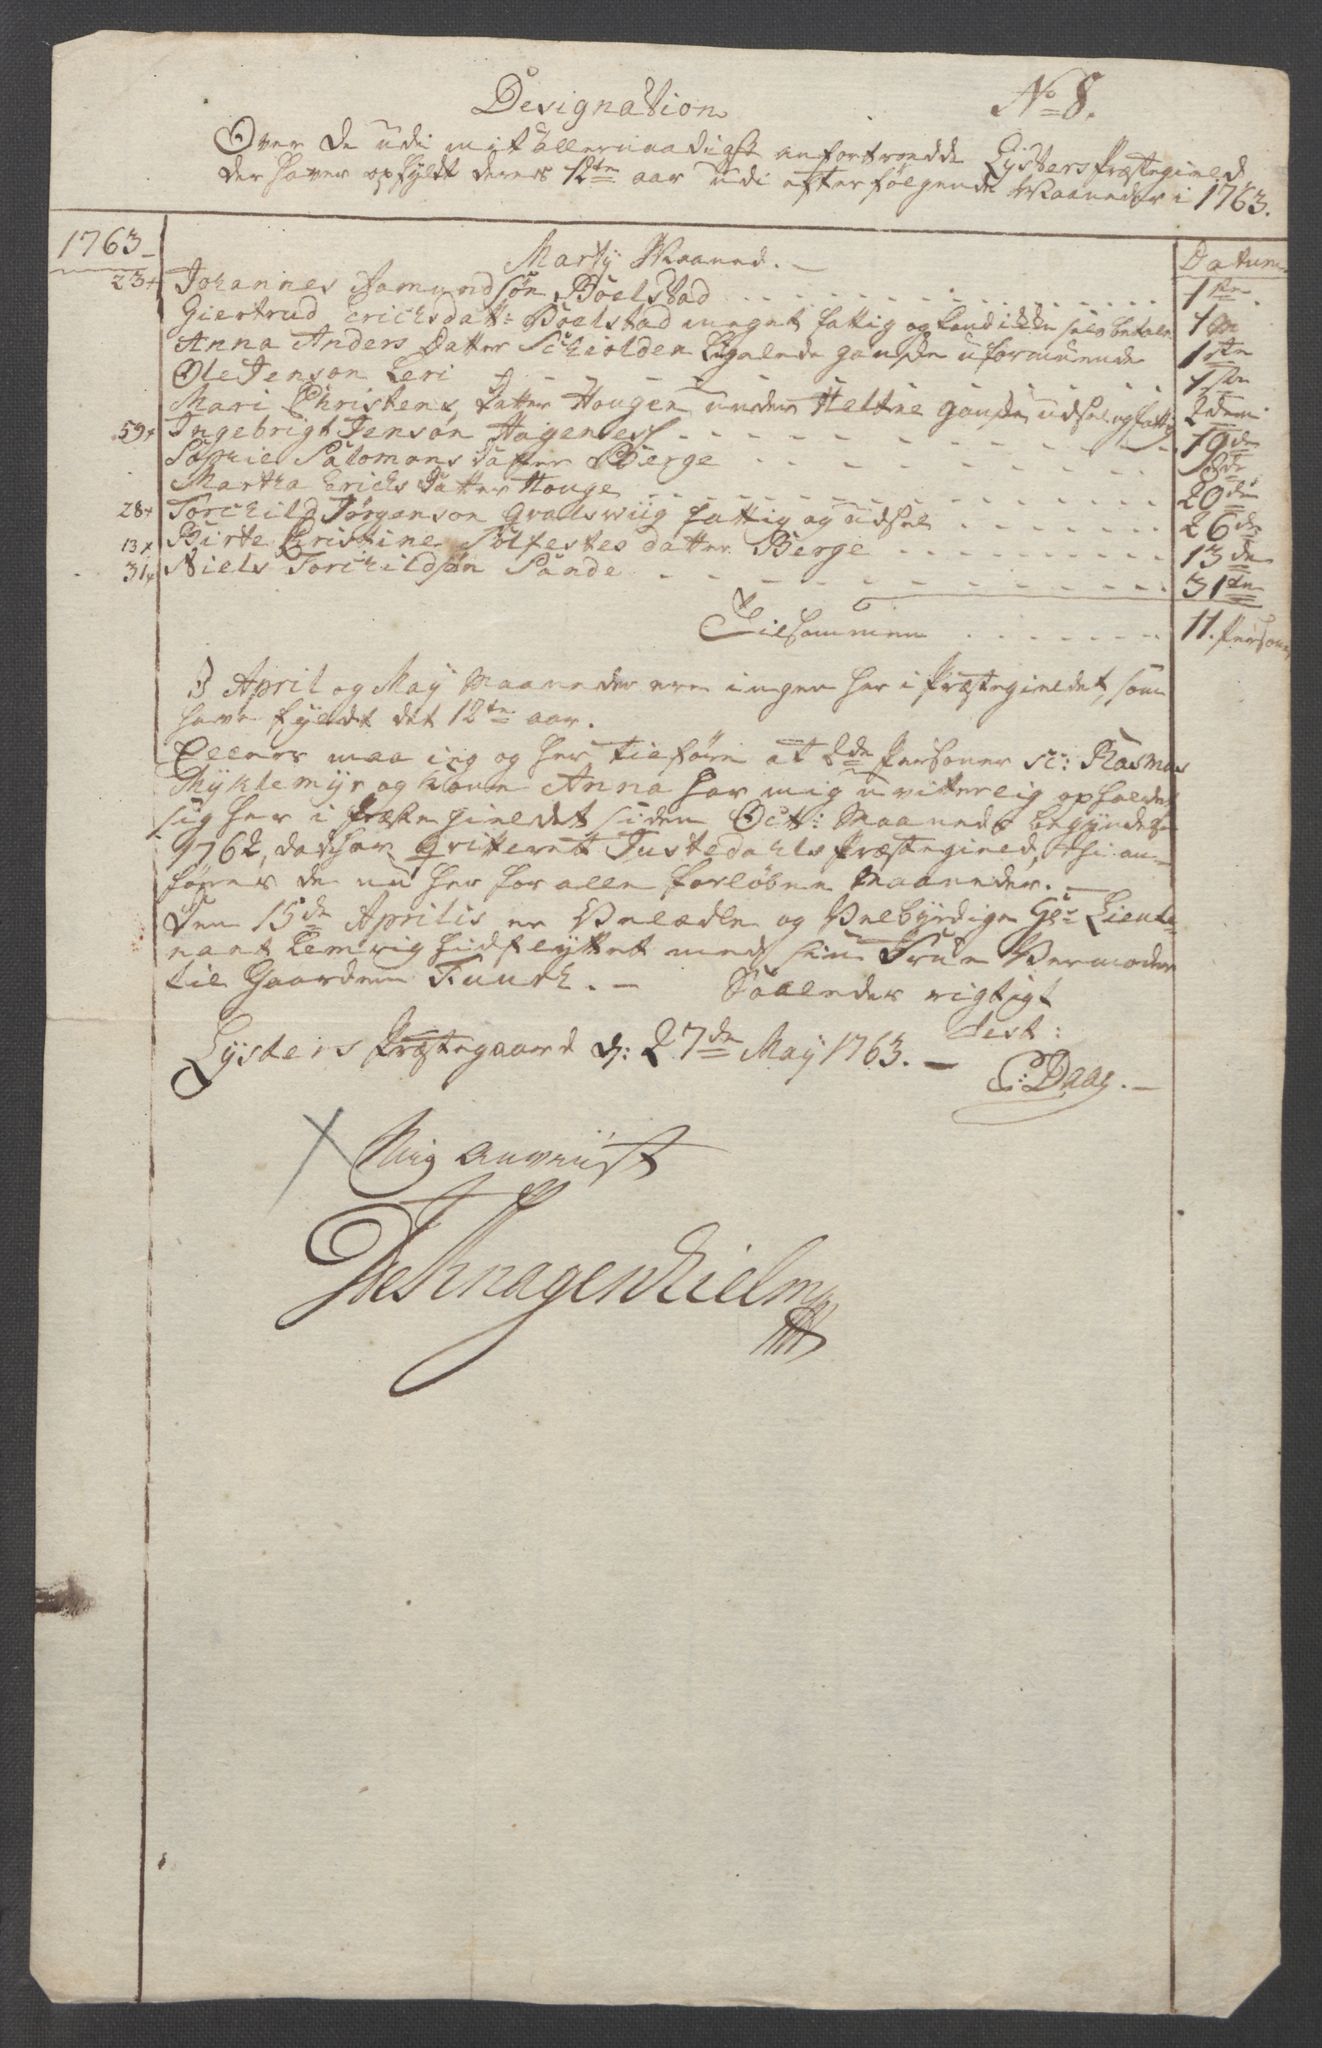 Designation
No 8.
Over de udi mit allernaadigst anfortroedde Lysters Præstegield
der haver opfyldt deres 12te aar udi efterfølgende Maaneder i 1763.
1763
Marty Maaned.
Datum
23+ Johannes Aamundsøn Bøelstad 1ste
Giertrud Erichsdatt: Bøelstad meget fattig og kand ikke selv betale 1ste
Anna Anders Datter Schiolden ligeleede gandske uformuende 1ste
Ole Jenson Leri 1ste
Mari Christens Datter Hougen under gandske udsel og fattig 2den
59+ Ingebrigt Jensøn Hageness 19de
Sophie Salomons datter Berge
Martha Erichs Datter Houge 20de
28+ Torchild Jørgenson Qvalswiig fattig og udsel 26de
13+ Birte Kristine Solfestes datter Berge 13de
31+ Niels Torchildsøn Sande 31te
Tilsammen 11. Personer
I April og May Maaneder ere ingen her i Præstegieldet, som
have fyldt det 12te aar.
Ellers maa ieg og her tilføre at 2de Personer sc: Rasmus
Myklemyr og kone Anna har mig uvitterlig opholdet
sig her i Præstegieldet siden Oct: Maaneds begyndelse
1762, da har qvitteret Justedahls Præstegield, thi an-
føres de nu her for alle forløbne Maaneder.
Den 15de Aprilis er Velædle og Velbyrdige Hr: Lieute-
nant Lemvig hidflyttet med sin Frue Vermoder
til Gaarden Tuudh. Saaledes rigtigt
test:
Lysters Præstegaard d: 27de May 1763.
C: Daae.
Mig anviist
De Knagenhielm